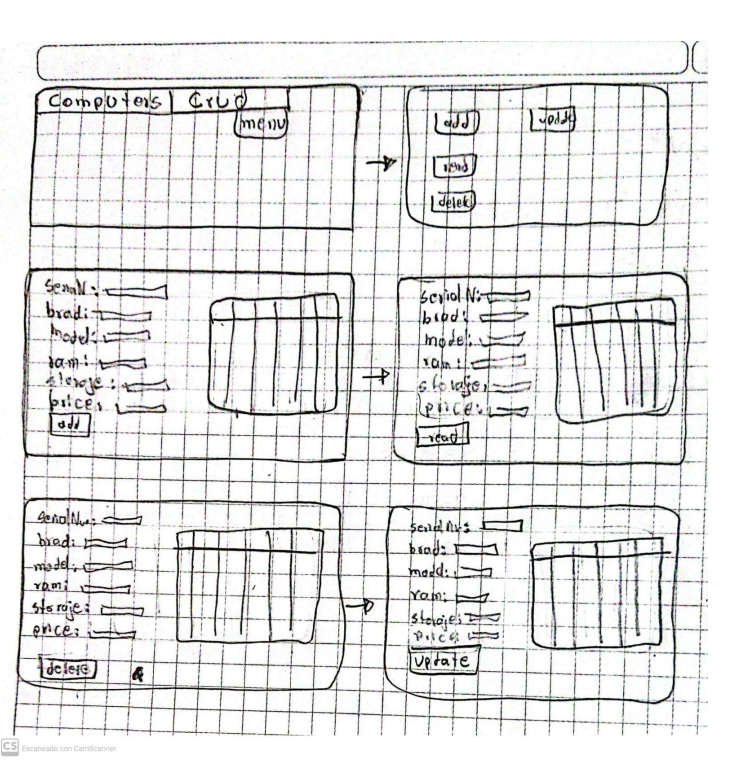 Computers Crud
menu
add update
read
delete
serialN:
brad:
model:
ram:
storaje:
price:
add
serial N:
brad:
model:
ram:
storaje:
price:
read
serial Nu:
brad:
model:
ram:
storaje:
price:
delete
serial Nu:
brad:
model:
ram:
storaje:
price:
update
CS Escaneado con CamScanner